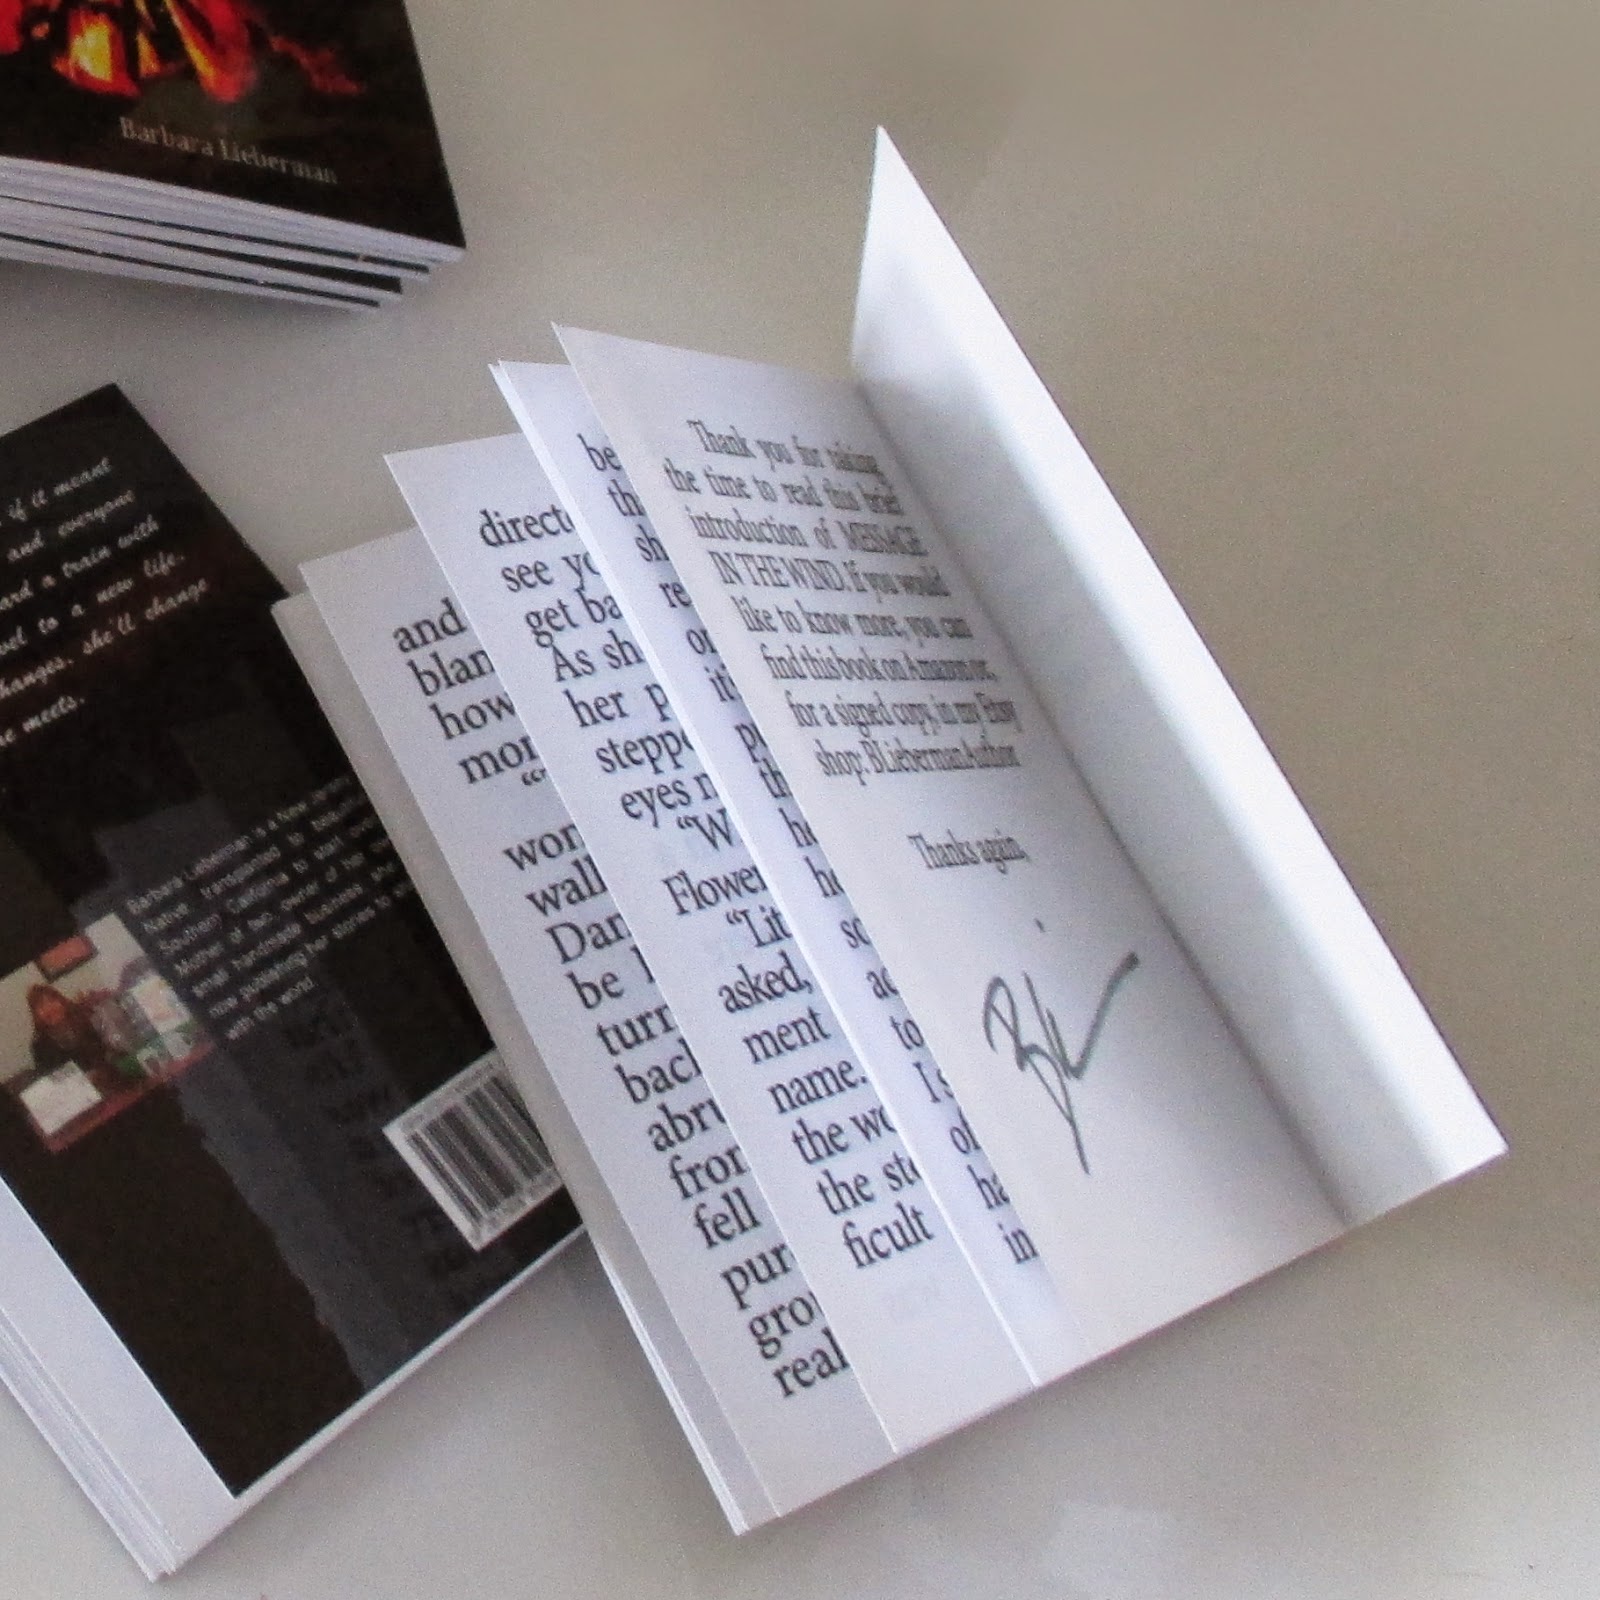 Barbara Lieberman
if it meant
and everyone
a train with
to a new life.
she'll change
meets.
Barbara Lieberman is a New Jersey
Native transplanted to
Southern California to start
Mother of two, owner of her
small handmade business, she
now publishing her stories to
with the world.
and
blan
how
mor
“
won
wall
Dar
be
turr
back
abru
fror
fell
pur
gro
real
direct
see yo
get ba
As sh
her p
steppe
eyes n
“W
Flower
“Lit
asked,
ment
name.
the wo
the st
ficult
be
th
sh
re
or
it'
pu
th
he
he
he
so
ac
to
I s
of
ha
in
Thank you for taking
the time to read this brief
introduction of MESSAGE
IN THE WIND. If you would
like to know more, you can
find this book on Amazon or,
for a signed copy, in my Etsy
shop: BLiebermanAuthor
Thanks again,